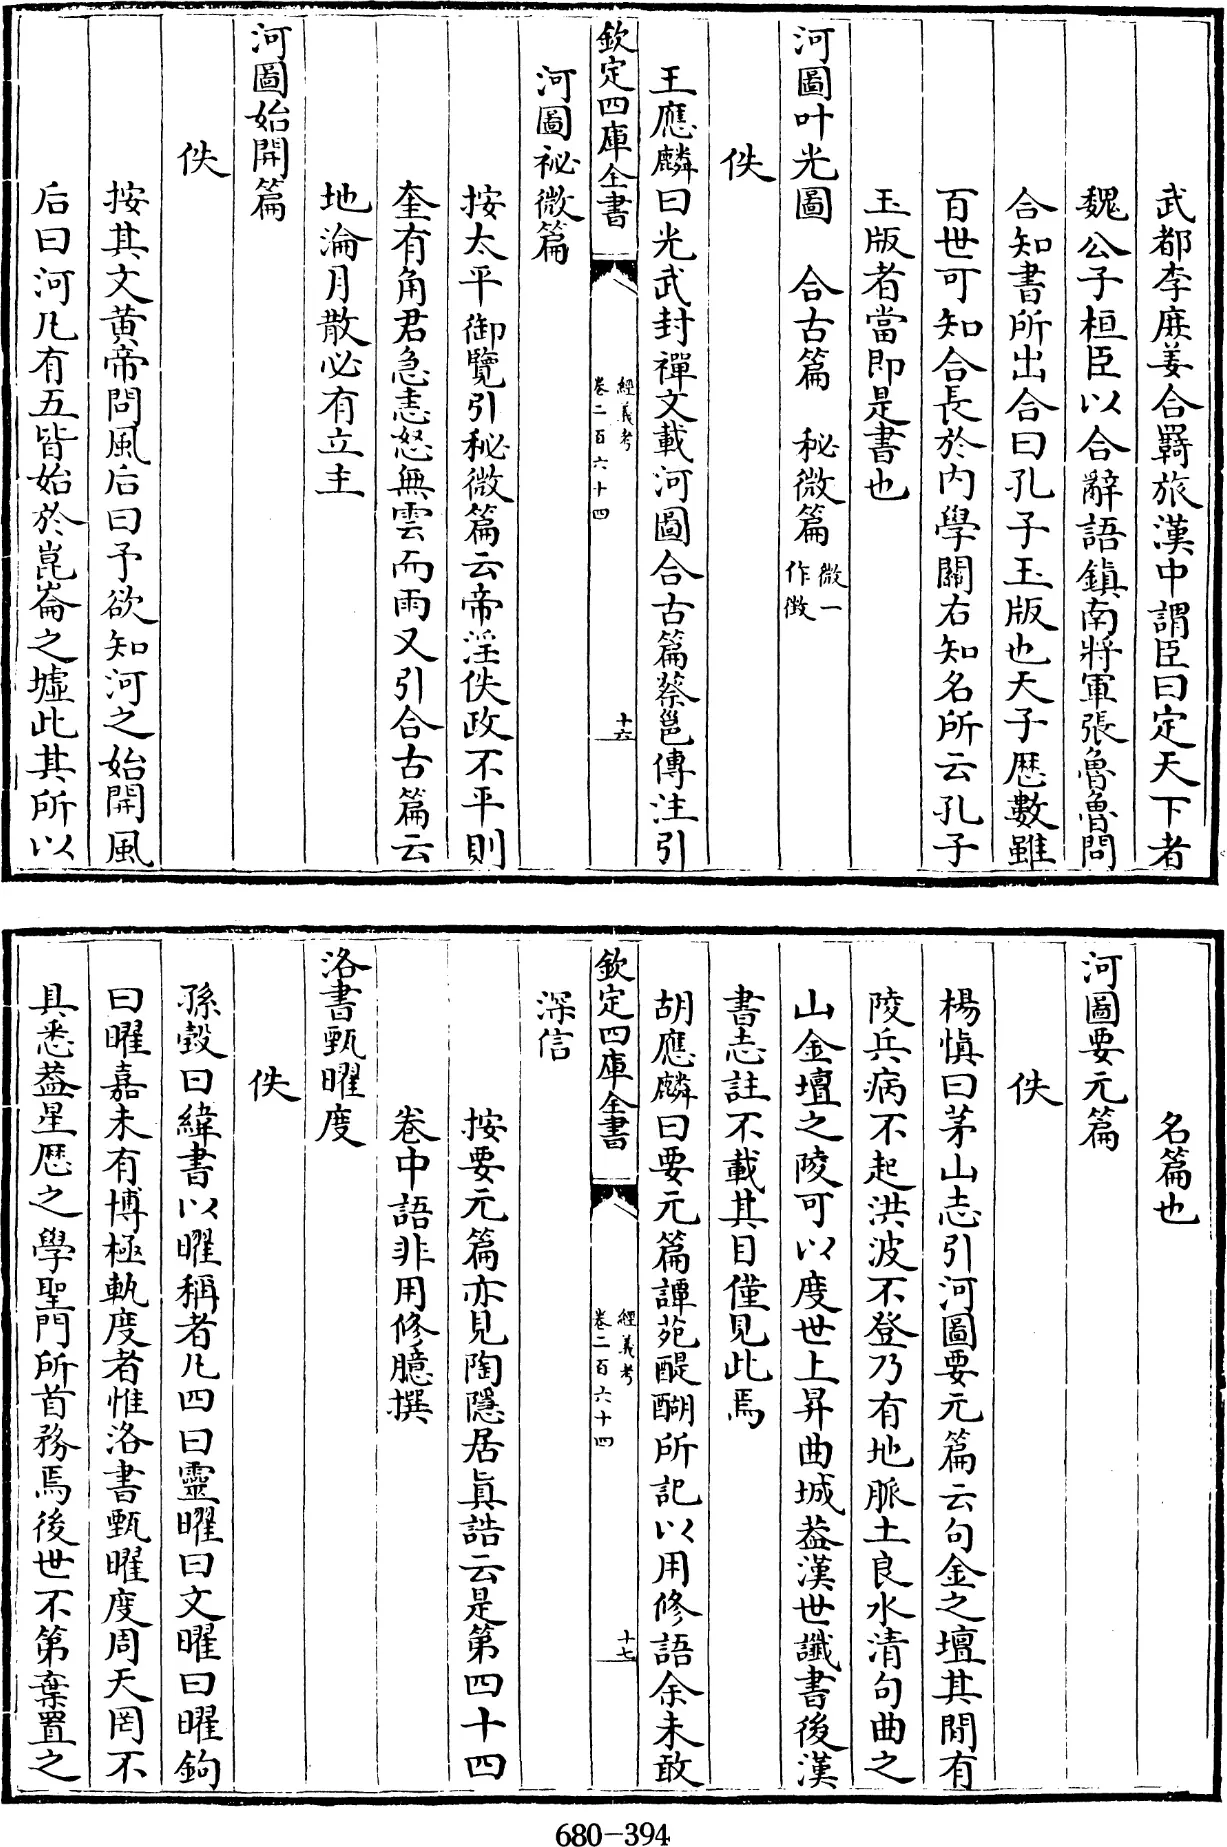 武都李庶姜合羇旅漢中謂臣曰定天下者
魏公子桓臣以合辭語鎮南將軍張魯魯問
合知書所出合曰孔子玉版也天子厯數雖
百世可知合長於内學關右知名所云孔子
玉版者當即是書也
河圖叶光圖　合古篇　秘微篇微一作徴
佚
王應麟曰光武封禪文載河圖合古篇蔡邕傳注引
欽定四庫全書　經義考卷二百六十四　十六
河圖祕微篇
按太平御覽引秘微篇云帝淫佚政不平則
奎有角君急恚怒無雲而雨又引合古篇云
地淪月散必有立主
河圖始開篇
佚
按其文黄帝問風后曰予欲知河之始開風
后曰河凡有五皆始於崑崙之墟此其所以
名篇也
河圖要元篇
佚
楊慎曰茅山志引河圖要元篇云句金之壇其閒有
陵兵病不起洪波不登乃有地脈土良水清句曲之
山金壇之陵可以度世上昇曲城葢漢世讖書後漢
書志註不載其目僅見此焉
胡應麟曰要元篇譚苑醍醐所記以用修語余未敢
欽定四庫全書　經義考卷二百六十四　十七
深信
按要元篇亦見陶隱居眞誥云是第四十四
卷中語非用修臆撰
洛書甄曜度
佚
孫瑴曰緯書以曜稱者凡四曰靈曜曰文曜曰曜鉤
曰曜嘉未有博極軌度者惟洛書甄曜度周天罔不
具悉葢星厯之學聖門所首務焉後世不第棄置之
680-394